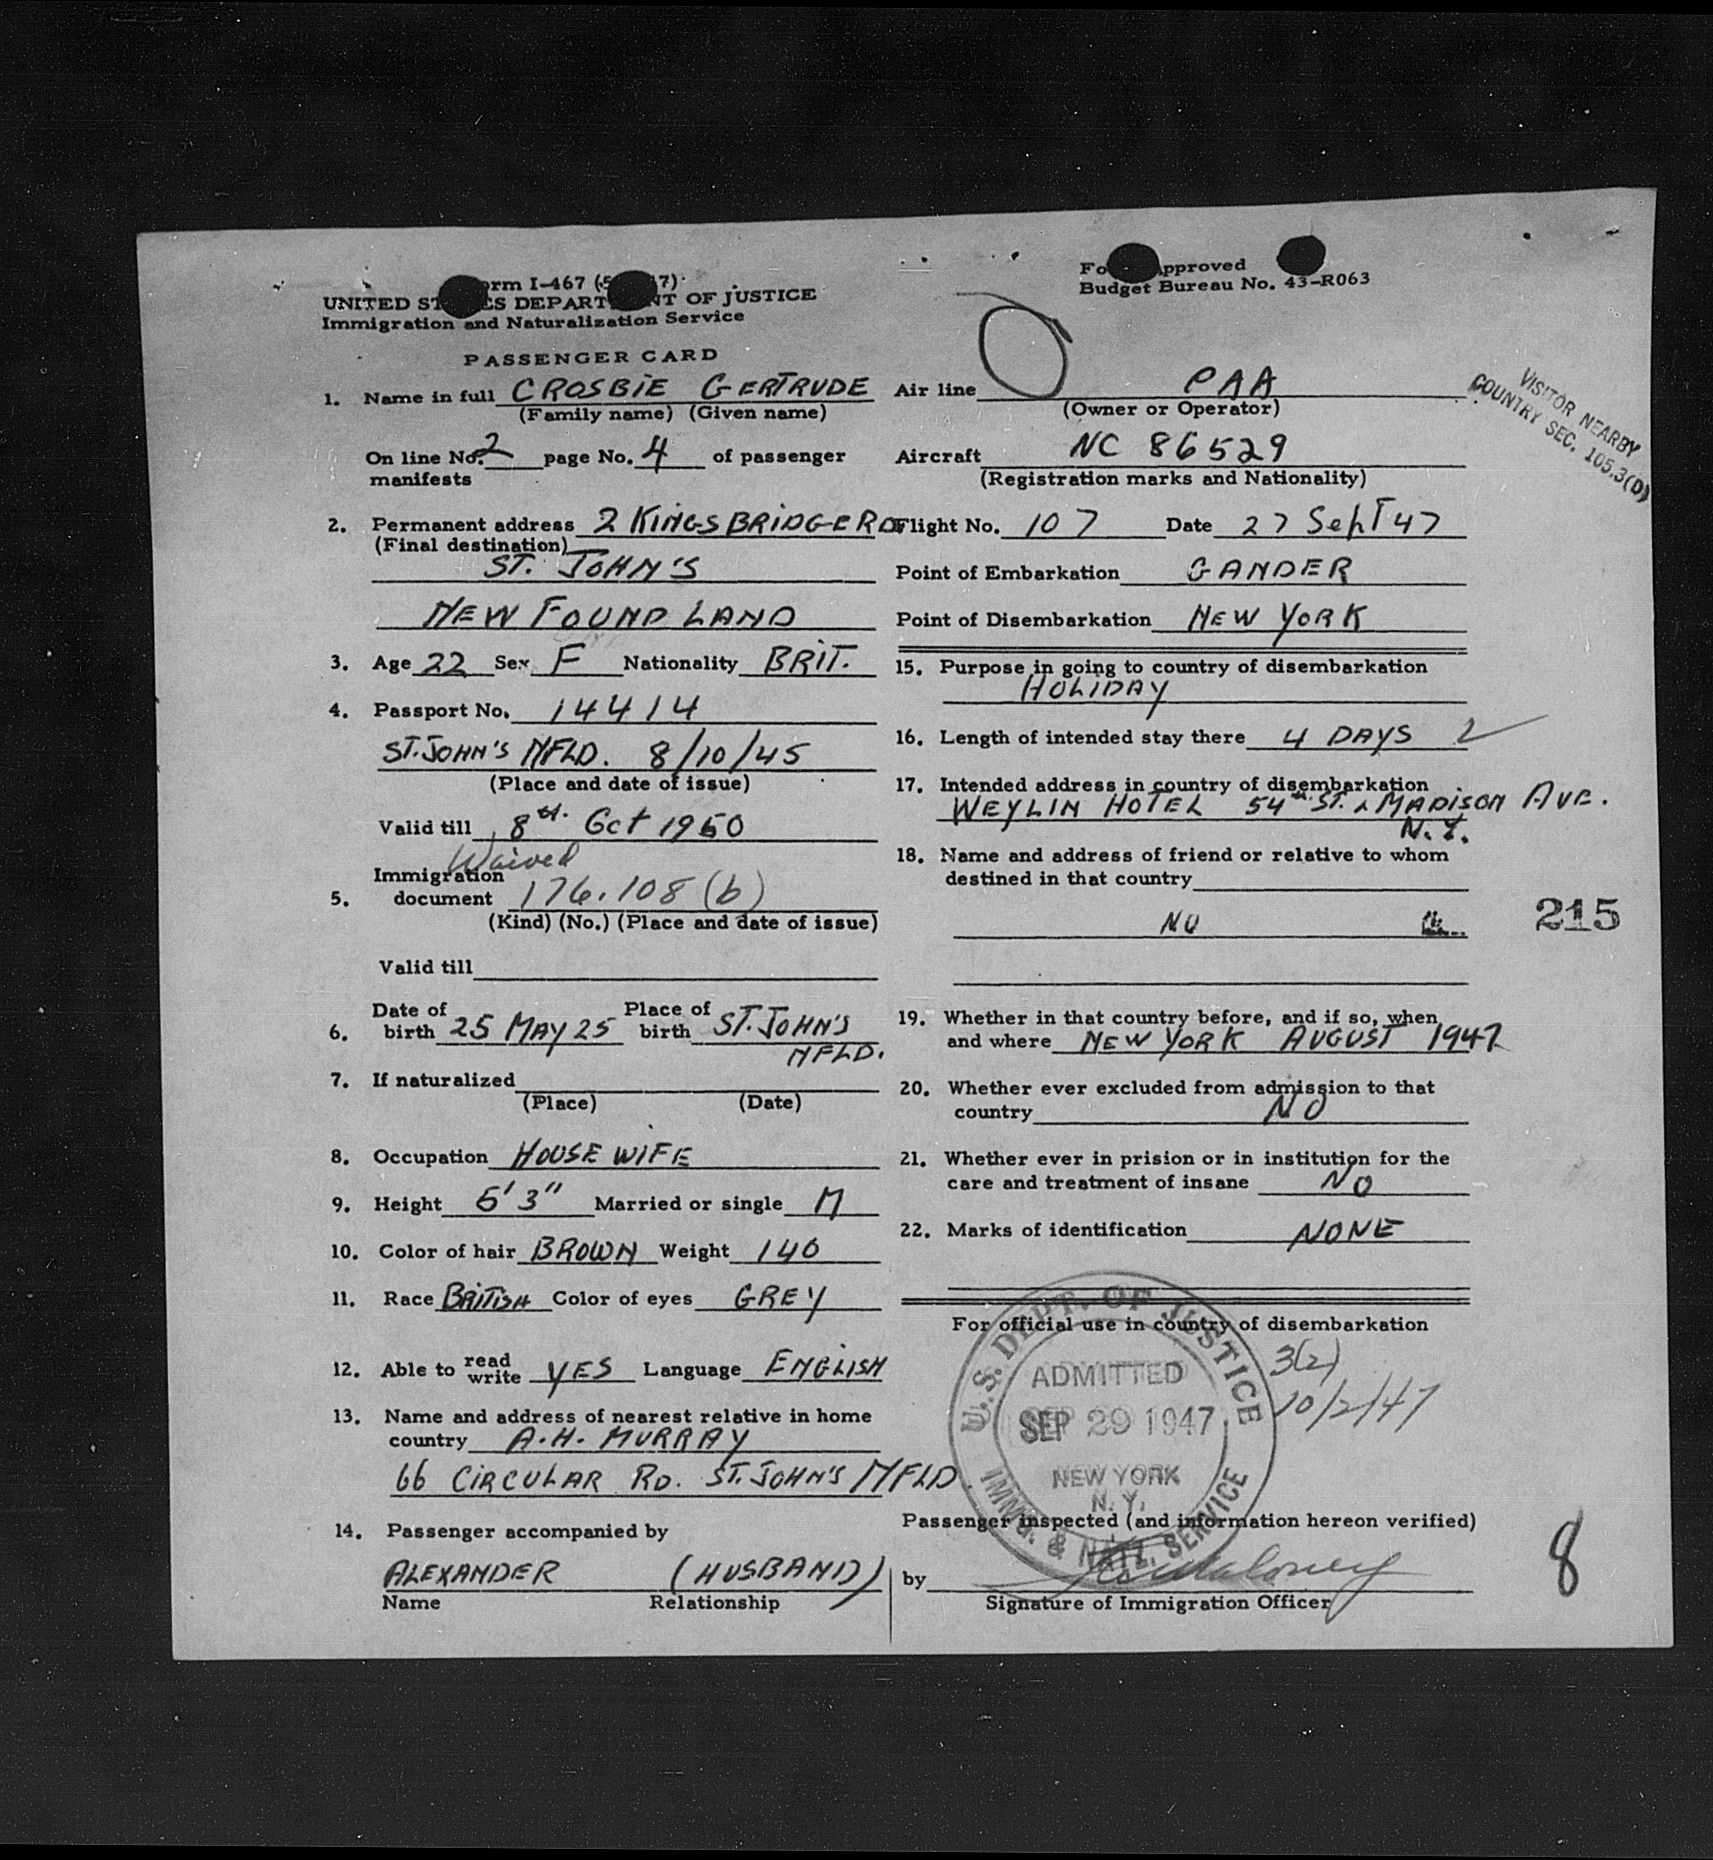 Form I-467
UNITED STATES DEPARTMENT OF JUSTICE
Immigration and Naturalization Service
PASSENGER CARD
1. Name in full CROSBIE GERTRUDE
(Family name) (Given name)
On line No. 2 page No. 4 of passenger
manifests
2. Permanent address 2 KINGSBRIDGE RD
(Final destination)
ST. JOHN'S
NEW FOUND LAND
3. Age 22 Sex F Nationality BRIT.
4. Passport No. 14414
ST. JOHN'S NFLD. 8/10/45
(Place and date of issue)
Valid till 8th. Oct 1950
Waived
Immigration
5. document 176.108(b)
(Kind) (No.) (Place and date of issue)
Valid till
Date of Place of
6. birth 25 MAY 25 birth ST. JOHN'S
NFLD.
7. If naturalized
(Place) (Date)
8. Occupation HOUSE WIFE
9. Height 5' 3" Married or single M
10. Color of hair BROWN Weight 140
11. Race BRITISH Color of eyes GREY
12. Able to read write YES Language ENGLISH
13. Name and address of nearest relative in home
country A.H. MURRAY
66 CIRCULAR RD. ST. JOHN'S NFLD
14. Passenger accompanied by
ALEXANDER (HUSBAND)
Name Relationship
Form Approved
Budget Bureau No. 43-R063
Air line PAA
(Owner or Operator)
VISITOR NEARBY
COUNTRY SEC. 105.3(D)
Aircraft NC 86529
(Registration marks and Nationality)
Flight No. 107 Date 27 Sept 47
Point of Embarkation GANDER
Point of Disembarkation NEW YORK
15. Purpose in going to country of disembarkation
HOLIDAY
16. Length of intended stay there 4 DAYS
17. Intended address in country of disembarkation
WEYLIN HOTEL 54th ST. & MADISON AVE.
N.Y.
18. Name and address of friend or relative to whom
destined in that country
NO
215
19. Whether in that country before, and if so, when
and where NEW YORK AUGUST 1947
20. Whether ever excluded from admission to that
country NO
21. Whether ever in prision or in institution for the
care and treatment of insane NO
22. Marks of identification NONE
For official use in country of disembarkation
U.S. DEPT. OF JUSTICE
ADMITTED
SEP 29 1947
NEW YORK
N. Y.
IMM. & NATZ. SERVICE
3(2)
10/2/47
Passenger inspected (and information hereon verified)
by
Signature of Immigration Officer
8